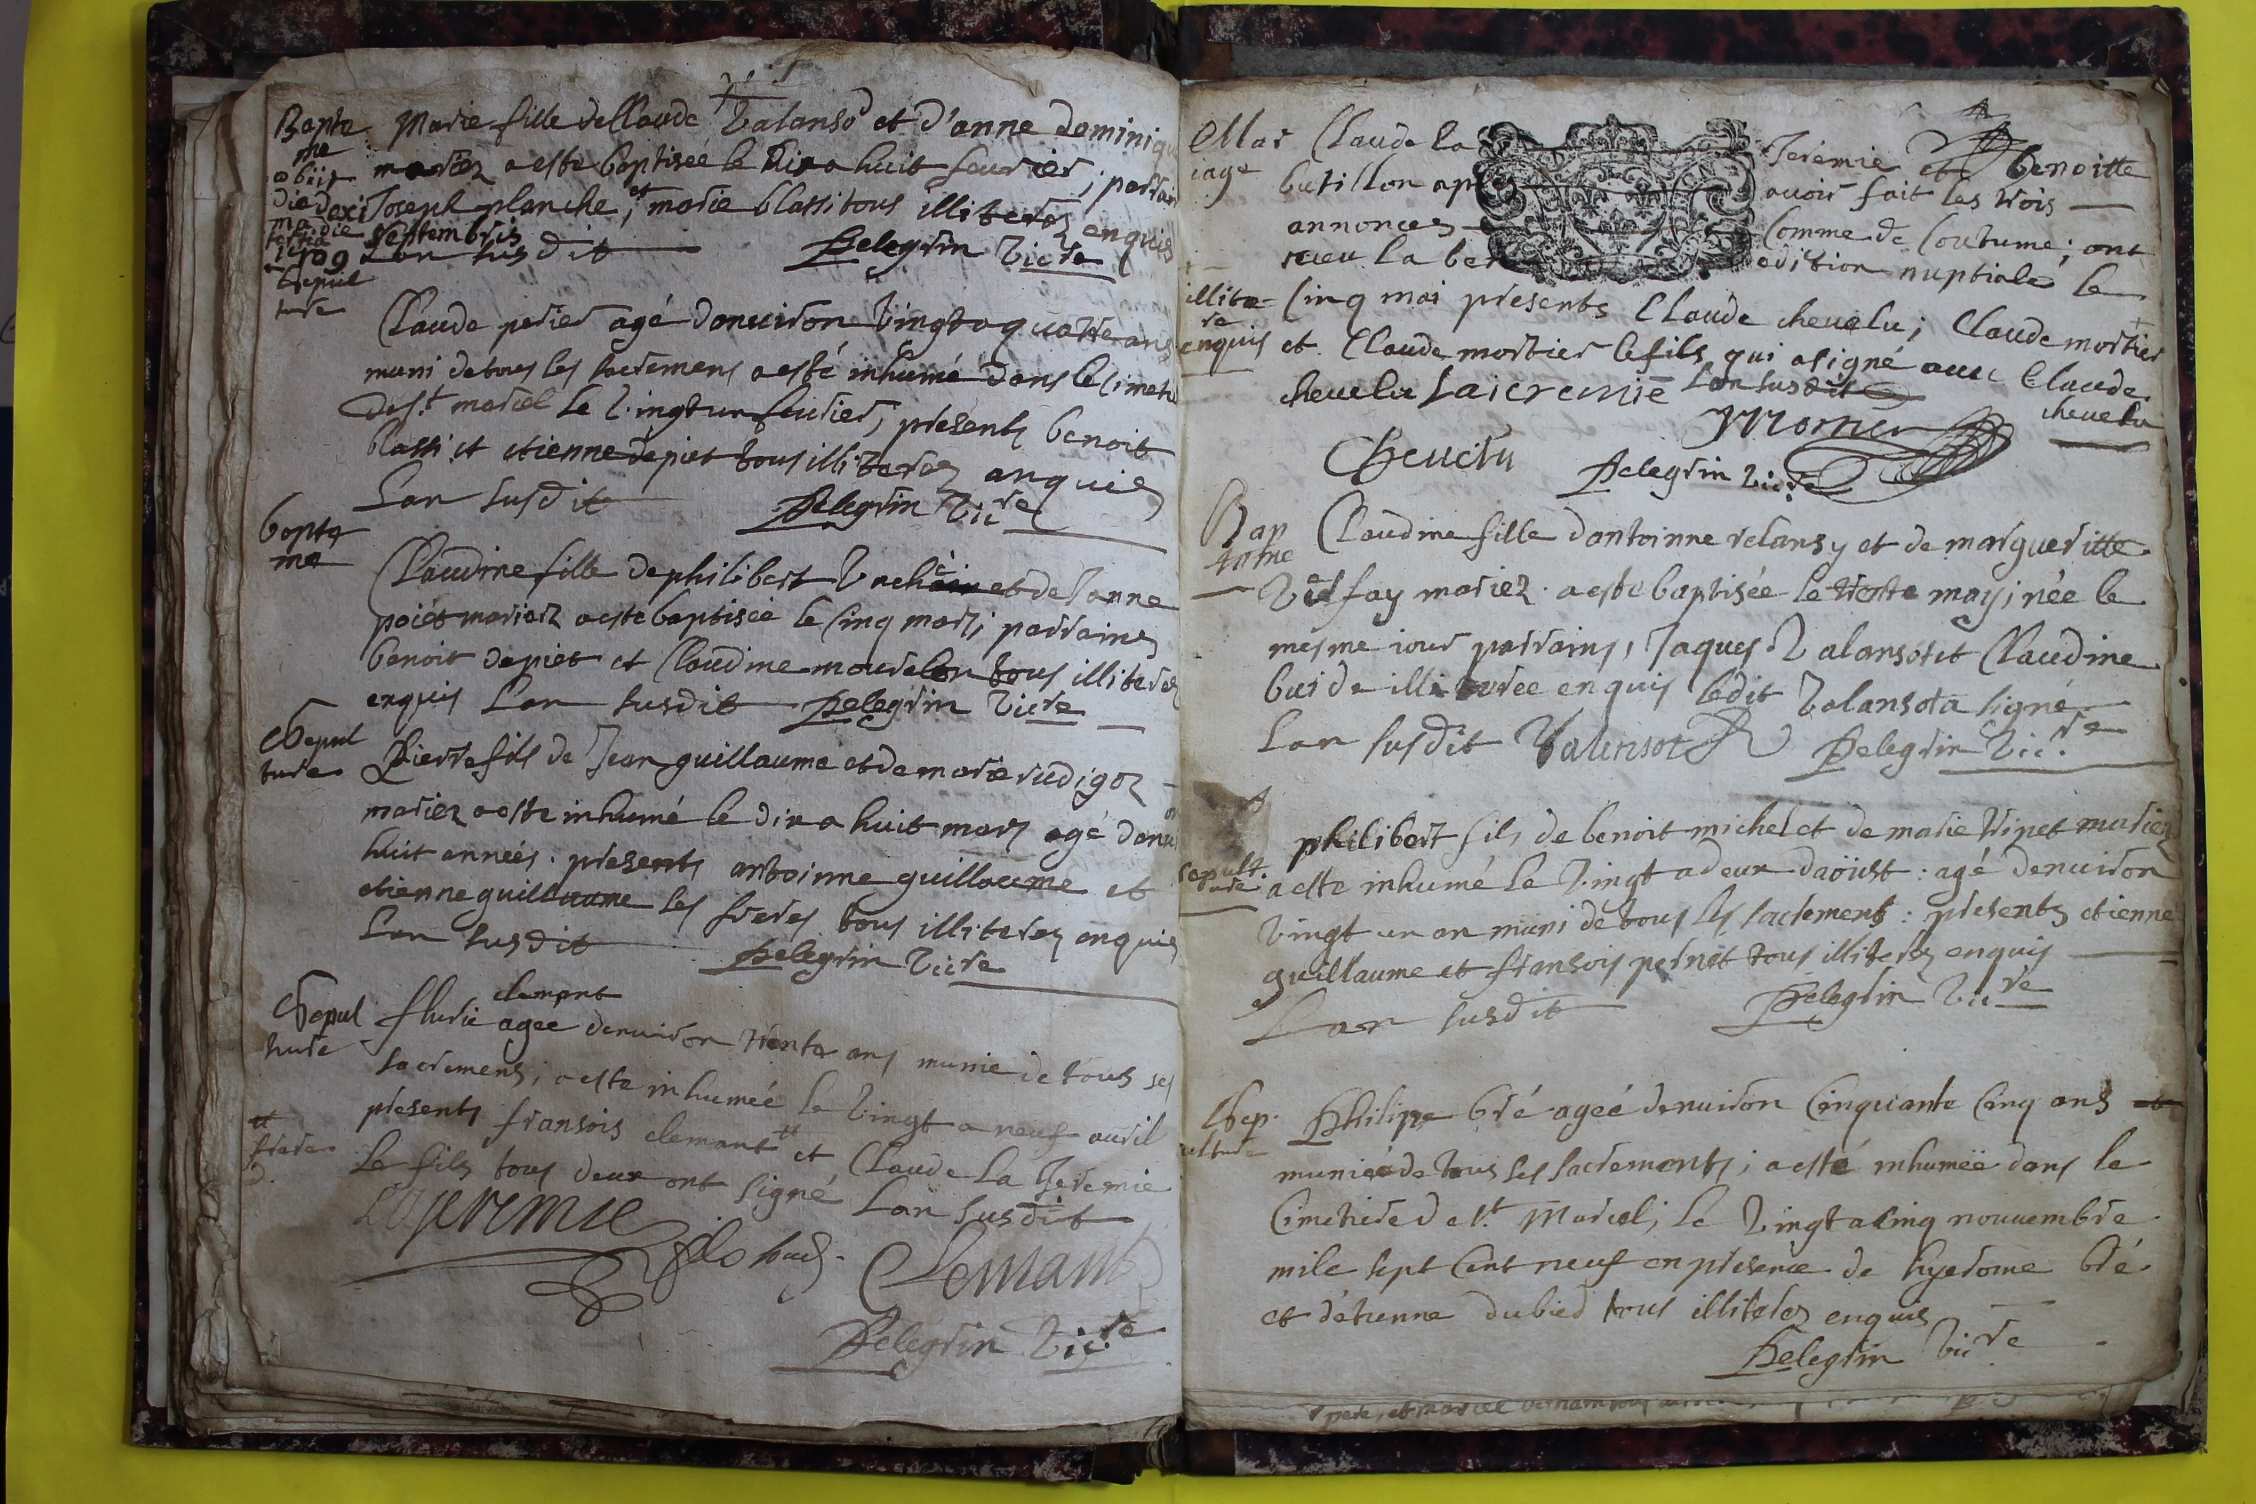 Bapte
me
obiit
die dexi
ma die
septembris
1709
Marie fille de Claude Valanso et d'anne dominique
mariez a esté baptiseé le dix a huit feurier; parrain
Joseph planche, et marie blassi tous illiterez enquis
Lan susdit Pelegrin Vicre
Sepul
ture
Claude perier agé denuiron Vingt a quatre ans
muni de tous les sacremens a esté inhumé dans le cimeti
de st marcel le Vingt un feurier; presents benoit
blassi et etienne depiet tous illiterez enquis
Lan susdit Pelegrin Vicre
bapte
me
Claudine fille de philibert et de Janne
poiét mariez a esté baptiseé le Cinq mars; parrains
benoit depiet et Claudine mourelon tous illiterez
enquis Lan susdit Pelegrin Vicre
Sepul
ture
Pierre fils de Jean guillaume et de marie rudigoz
mariez a esté inhumé le dix a huit mars agé denui
huit anneés. presents antoinne guillaume et
etienne guillaume les freres tous illiterez enquis
Lan susdit Pelegrin Vicre
Sepul
ture
clement
flurie agee denuiron trente ans munie de tous ses
sacremens; a esté inhumeé le Vingt a neuf auril
presents fransois clemant et Claude La Jeremie
frere
Le fils tous deux ont signé Lan susdit
Lajeremie
Clemant
Pelegrin Vic.re
Mar
iage
Claude la Jeremie et benoitte
butillon apres auoir fait les trois
annonces Comme de Coutume; ont
receu la benedition nuptiale le
illite
re
enquis
Cinq mai presents Claude cheuelu; Claude mortier
et Claude mortier le fils qui a signé auec Claude
cheuelu
cheuelu Laieremie Lan susdit
Morticr
Cheuelu Pelegrin Vicre
Bap
teme
Claudine fille dantoinne relansy et de margueritte
Vielfay mariez. a esté baptisée le trente may; née le
mesme iour parrains, Jaques Valansot et Claudine
buide illiterée enquis ledit Valansot a signé
Lan susdit Valensot Pelegrin Vic.re
Sepult.
ure
philibert fils de benoit michel et de marie tripet mariez
a esté inhumé le Vingt a deux daoüst: agé denuiron
Vingt un an muni de tous les sacrements: presents etienne
guillaume et fransois pernet tous illiterez enquis
Lan susdit Pelegrin Vicre
Sep.
ulture
Philippe bré ageé denuiron Cinquante Cinq ans
munieé de tous les sacrements; a esté inhumeë dans le
Cimetiere de st. Marcel; le Vingt a Cinq nouuembre
mile sept Cent neuf en presence de hyerome bré
et détienne dubied tous illiterez enquis
Pelegrin Vicre